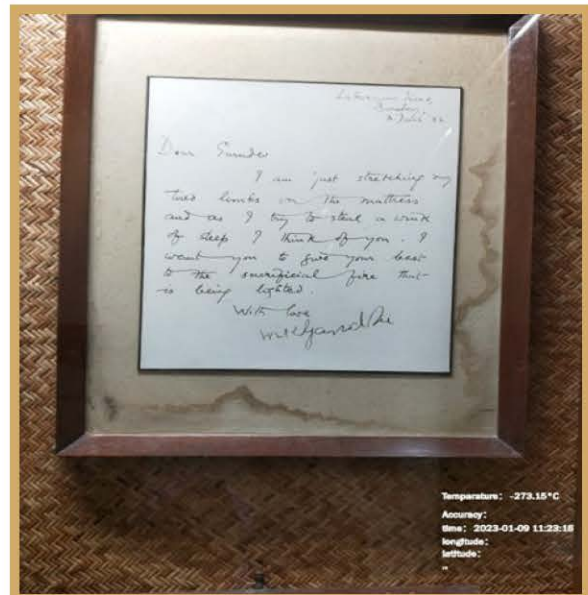 Bombay,
Dear Gurudev
I am just stretching my
tired limbs on the mattress
and as I try to steal a wink
of sleep I think of you. I
want you to give your best
to the sacrificial fire that
is being lighted.
With love
MKGandhi
Temparature: -273.15°C
Accuracy:
time: 2023-01-09 11:23:16
longitude:
latitude: